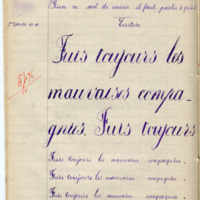 Rien ne sert de courir il faut partir à point
Ecriture
Fuis toujours les
mauvaises compa-
gnies. Fuis toujours
Fuis toujours les mauvaises compagnies.
Fuis toujours les mauvaises compagnies.
Fuis toujours les mauvaises compagnies.